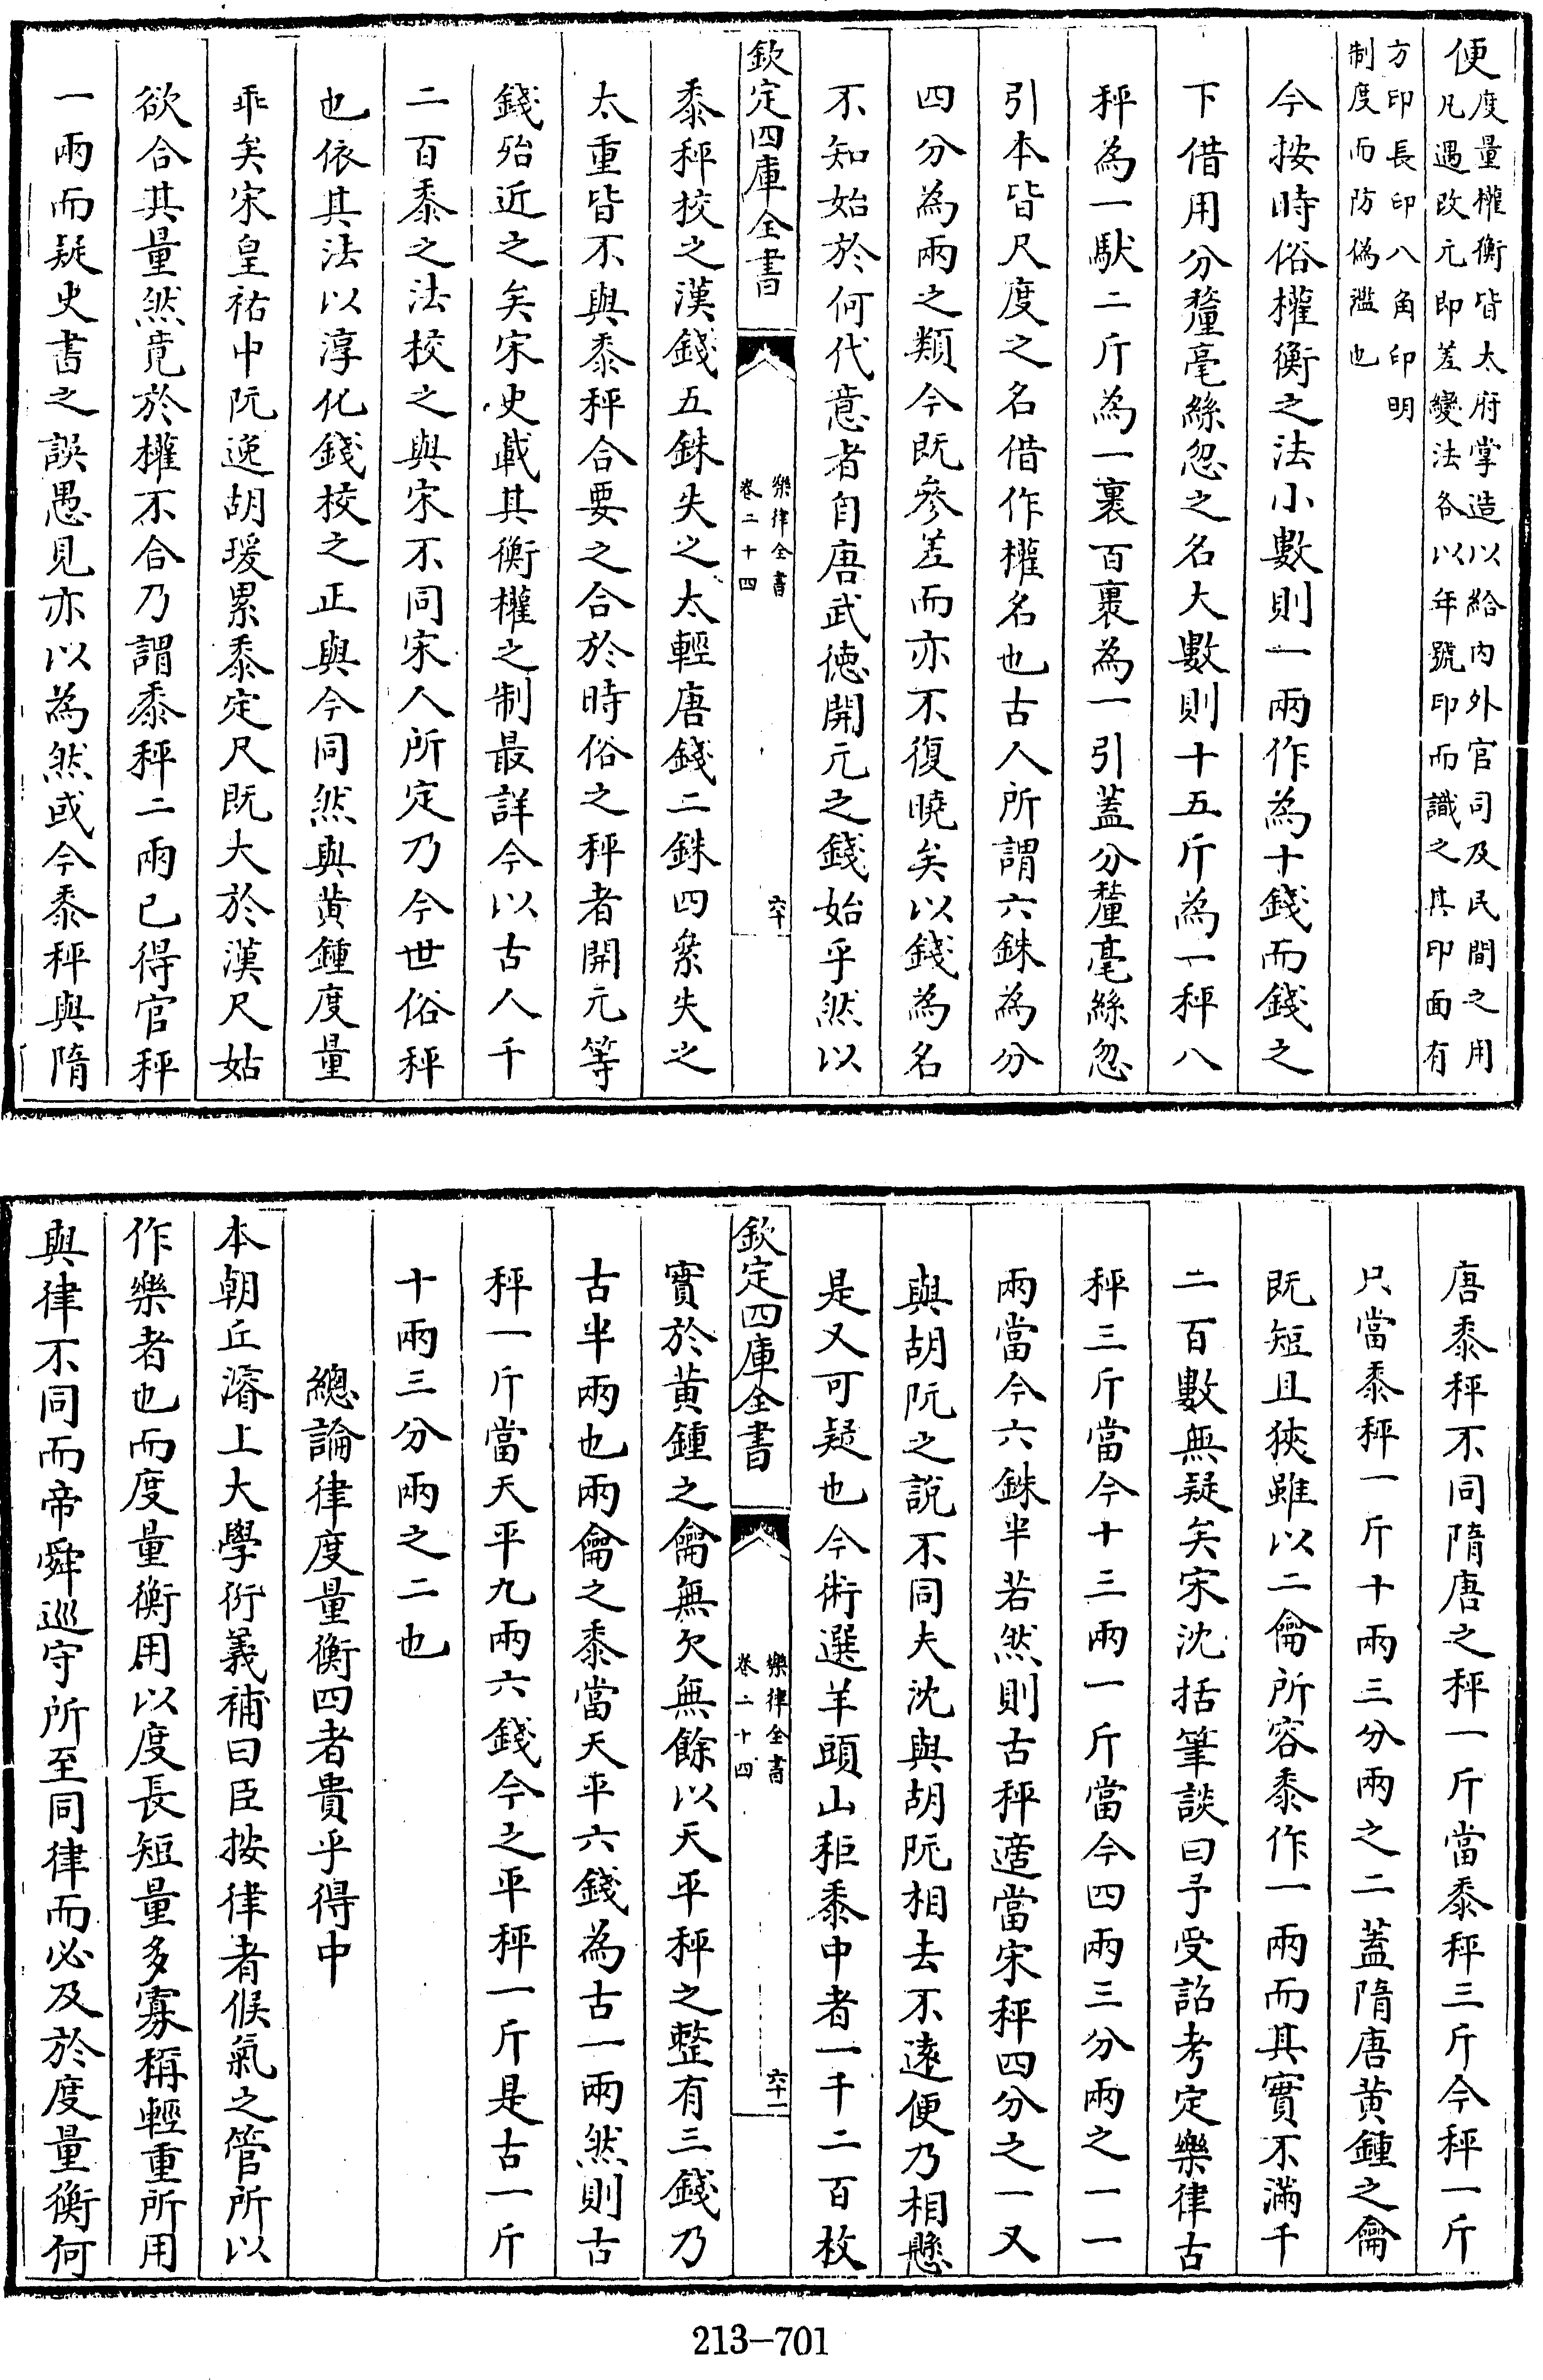 便度量權衡皆太府掌造以給內外官司及民間之用
凡遇改元即差變法各以年號印而識之其印面有
方印長印八角印明
制度而防偽濫也
今按時俗權衡之法小數則一兩作為十錢而錢之
下借用分釐毫絲忽之名大數則十五斤為一秤八
秤為一馱二斤為一裹百裹為一引蓋分釐毫絲忽
引本皆尺度之名借作權名也古人所謂六銖為分
四分為兩之類今既參差而亦不復曉矣以錢為名
不知始於何代意者自唐武德開元之錢始乎然以
欽定四庫全書
樂律全書
卷二十四
六十
黍秤校之漢錢五銖失之太輕唐錢二銖四絫失之
太重皆不與黍秤合要之合於時俗之秤者開元等
錢殆近之矣宋史載其衡權之制最詳今以古人千
二百黍之法校之與宋不同宋人所定乃今世俗秤
也依其法以淳化錢校之正與今同然與黃鍾度量
乖矣宋皇祐中阮逸胡瑗累黍定尺既大於漢尺姑
欲合其量然竟於權不合乃謂黍秤二兩已得官秤
一兩而疑史書之誤愚見亦以為然或今黍秤與隋
唐黍秤不同隋唐之秤一斤當黍秤三斤今秤一斤
只當黍秤一斤十兩三分兩之二蓋隋唐黃鍾之龠
既短且狹雖以二龠所容黍作一兩而其實不滿千
二百數無疑矣宋沈括筆談曰予受詔考定樂律古
秤三斤當今十三兩一斤當今四兩三分兩之一一
兩當今六銖半若然則古秤適當宋秤四分之一又
與胡阮之說不同夫沈與胡阮相去不遠便乃相懸
是又可疑也今術選羊頭山秬黍中者一千二百枚
欽定四庫全書
樂律全書
卷二十四
六十一
實於黃鍾之龠無欠無餘以天平秤之整有三錢乃
古半兩也兩龠之黍當天平六錢為古一兩然則古
秤一斤當天平九兩六錢今之平秤一斤是古一斤
十兩三分兩之二也
總論律度量衡四者貴乎得中
本朝丘濬上大學衍義補曰臣按律者候氣之管所以
作樂者也而度量衡用以度長短量多寡稱輕重所用
與律不同而帝舜巡守所至同律而必及於度量衡何
213-701